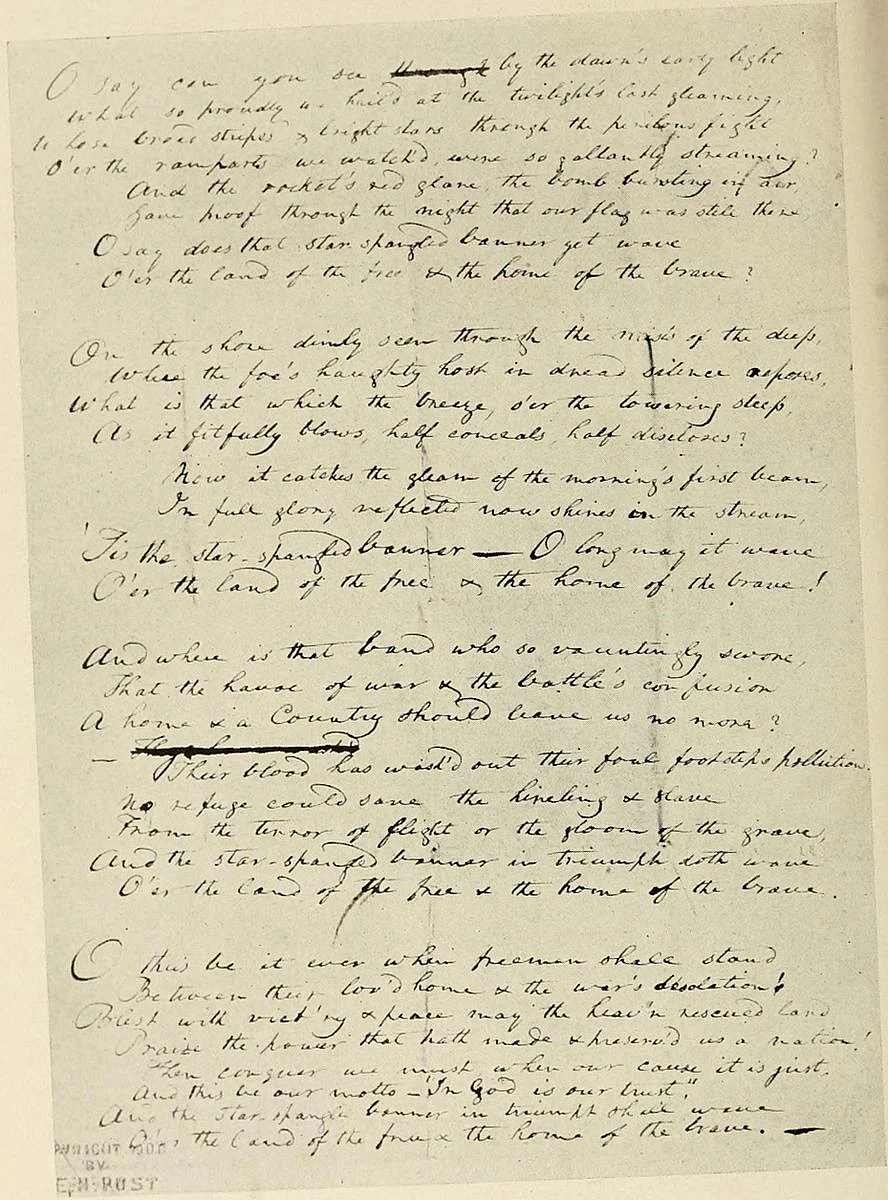 O say can you see through by the dawn's early light
What so proudly we hail'd at the twilight's last gleaming,
Whose broad stripes & bright stars through the perilous fight
O'er the ramparts we watch'd, were so gallantly streaming?
And the rocket's red glare, the bomb bursting in air,
Gave proof through the night that our flag was still there
O say does that star-spangled banner yet wave
O'er the land of the free & the home of the brave?
On the shore dimly seen through the mists of the deep,
Where the foe's haughty host in dread silence reposes,
What is that which the breeze, o'er the towering steep,
As it fitfully blows, half conceals, half discloses?
Now it catches the gleam of the morning's first beam,
In full glory reflected now shines in the stream,
'Tis the star-spangled banner — O long may it wave
O'er the land of the free & the home of the brave!
And where is that band who so vauntingly swore,
That the havoc of war & the battle's confusion
A home & a Country should leave us no more?
—
Their blood has wash'd out their foul footsteps pollution.
No refuge could save the hireling & slave
From the terror of flight or the gloom of the grave,
And the star-spangled banner in triumph doth wave
O'er the land of the free & the home of the brave.
O thus be it ever when freemen shall stand
Between their lov'd home & the war's desolation!
Blest with vict'ry & peace may the heav'n rescued land
Praise the power that hath made & preserv'd us a nation!
Then conquer we must, when our cause it is just,
And this be our motto — "In God is our trust,"
And the star-spangled banner in triumph shall wave
O'er the land of the free & the home of the brave. —
BY
E. H. RUST